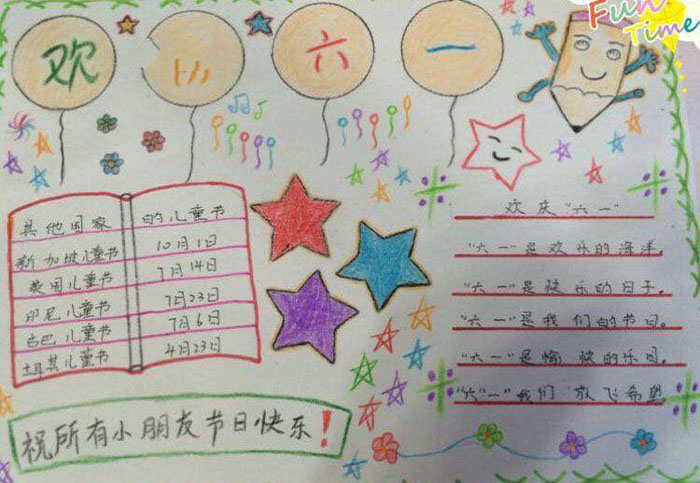 Fun
Time
欢 六 一
其他国家 的儿童节
新加坡儿童节 10月1日
英国儿童节 7月14日
印尼儿童节 7月23日
古巴儿童节 7月6日
土耳其儿童节 4月23日
欢庆“六一”
“六一”是欢乐的海洋.
“六一”是快乐的日子.
“六一”是我们的节日.
“六一”是愉快的乐日.
“六“一”我们 放飞希望
祝所有小朋友节日快乐!